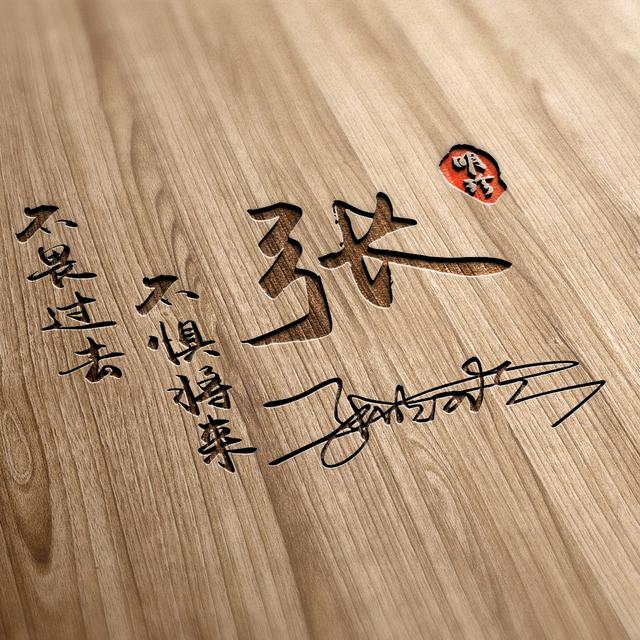 不畏过去
不惧将来
张
明珍